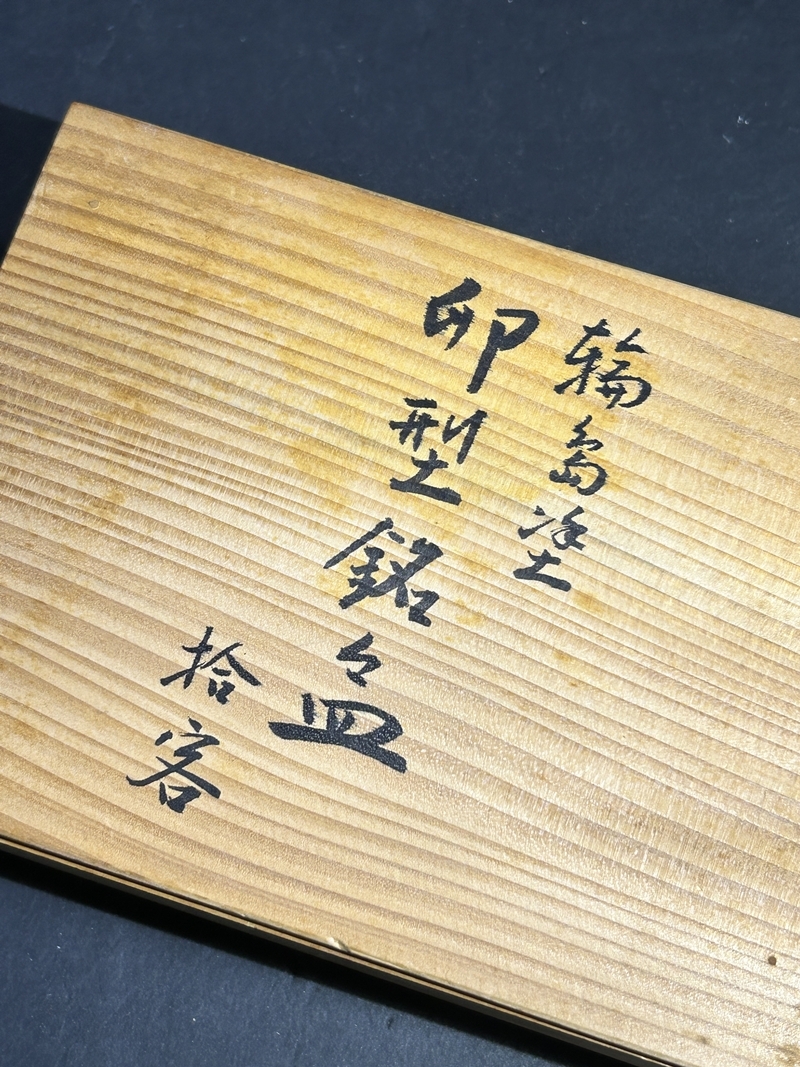 輪島塗
卵型銘々皿
拾客